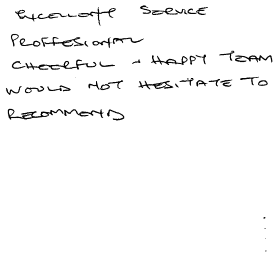 EXCELLENT SERVICE
PROFFESIONAL
CHEERFUL + HAPPY TEAM
WOULD NOT HESITATE TO
RECOMMEND